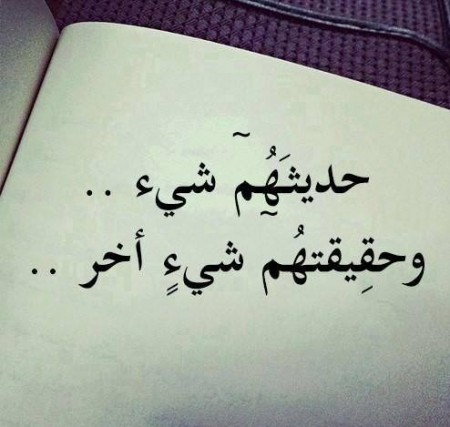 حديثـَهُم شيء ..
وحقِيقتهُم شيءٍ أخر ..